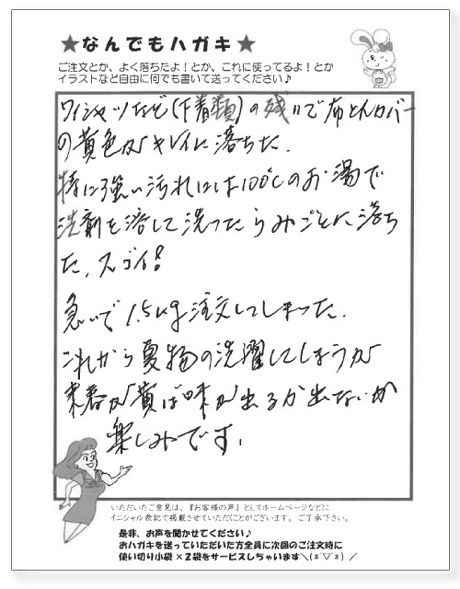 ★なんでもハガキ★
ご注文とか、よく落ちたよ!とか、これに使ってるよ!とか
イラストなど自由に何でも書いて送ってください♪
ワイシャツなど(下着類)の残りで布とんカバー
の黄色がキレイに落ちた.
特に強い汚れには100℃のお湯で
洗剤を溶して洗ったらみごとに落ち
た,スゴイ!
急いで1.5kg注文してしまった.
これから夏物の洗濯してしまうが
来春が黄ば味が出るか出ないか
楽しみです.
いただいたご意見は、『お客様の声』としてホームページなどに
イニシャル表記で掲載させていただくことがございます。ご了承下さい。
是非、お声を聞かせてください♪
おハガキを送っていただいた方全員に次回のご注文時に
使い切り小袋×2袋をサービスしちゃいます＼(*´▽`*)／